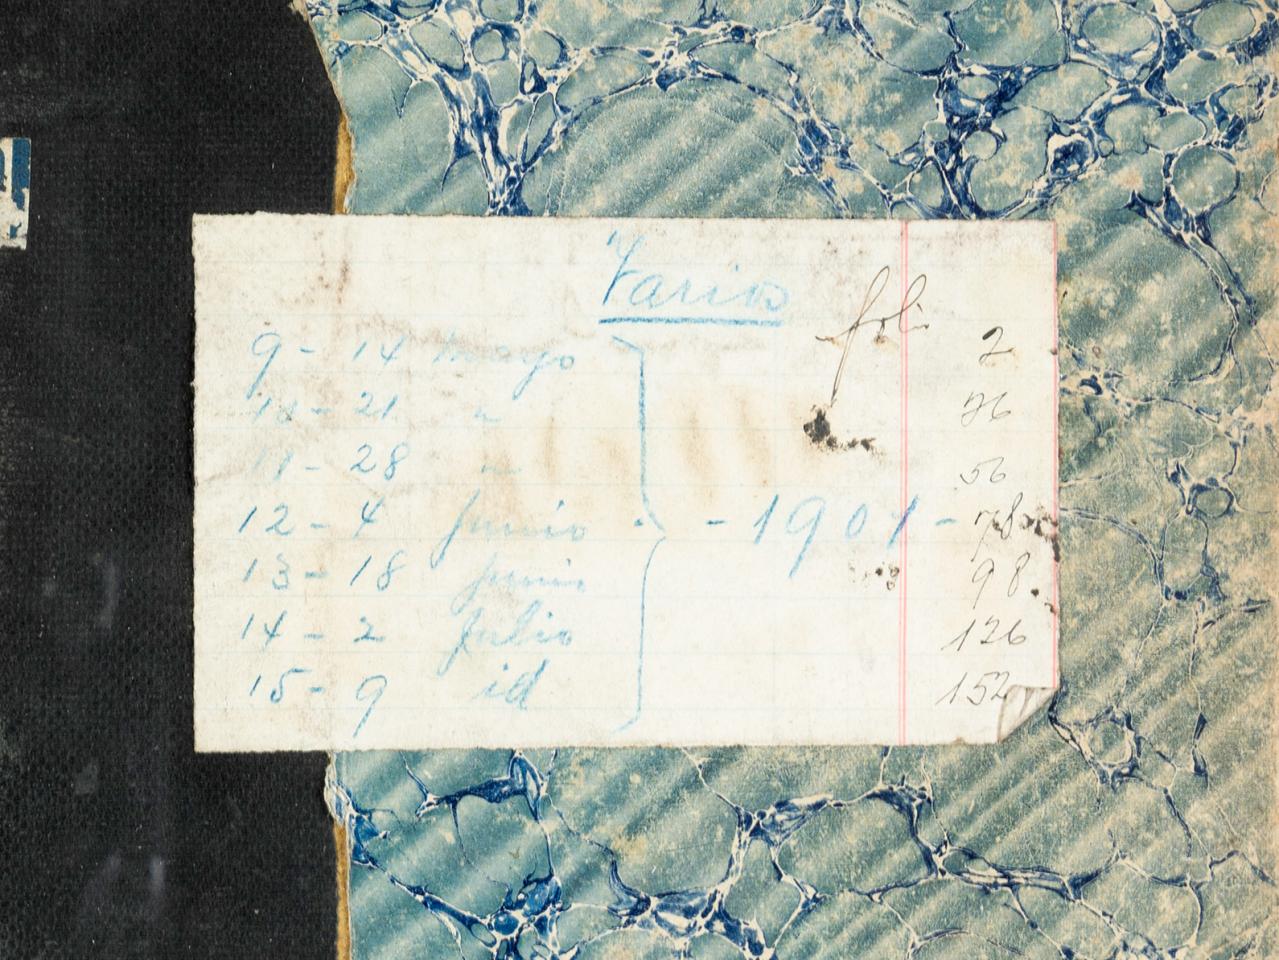 Varios
fol.
9 - 14 mayo 2
10 - 21 " 26
11 - 28 " 56
12 - 4 Junio - 1901 - 78
13 - 18 Junio 98
14 - 2 Julio 126
15 - 9 id 152